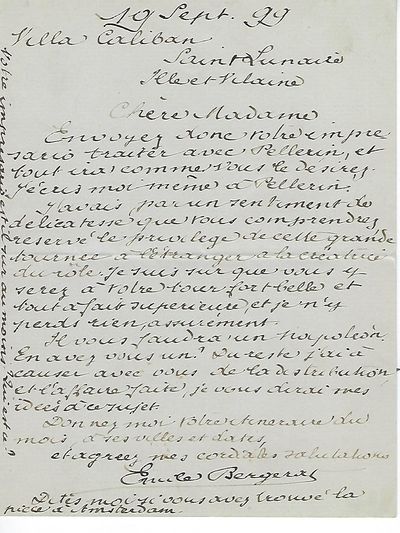 19 Sept. 99
Villa Caliban
Saint Lunaire
Ille et Vilaine
Chère Madame
Envoyez donc votre impre
sario traiter avec Pellerin, et
tout ira comme vous le désirez.
J'écris moi même à Pellerin.
J'avais par un sentiment de
délicatesse que vous comprendrez
réservé le privilège de cette grande
tournée à l'Etranger à la créatrice
du rôle. Je suis sûr que vous y
serez à votre tour fort belle et
tout à fait supérieure, et je n'y
perds rien, assurément.
Il vous faudra un Napoléon.
En avez vous un? Du reste j'ai à
causer avec vous de la distribution
et l'affaire faite, je vous dirai mes
idées à ce sujet.
Donnez moi votre itinéraire du
mois, ses villes et dates,
et agréez mes cordiales salutations
Emile Bergerat
Dites moi si vous avez trouvé la
pièce à Amsterdam.
Votre